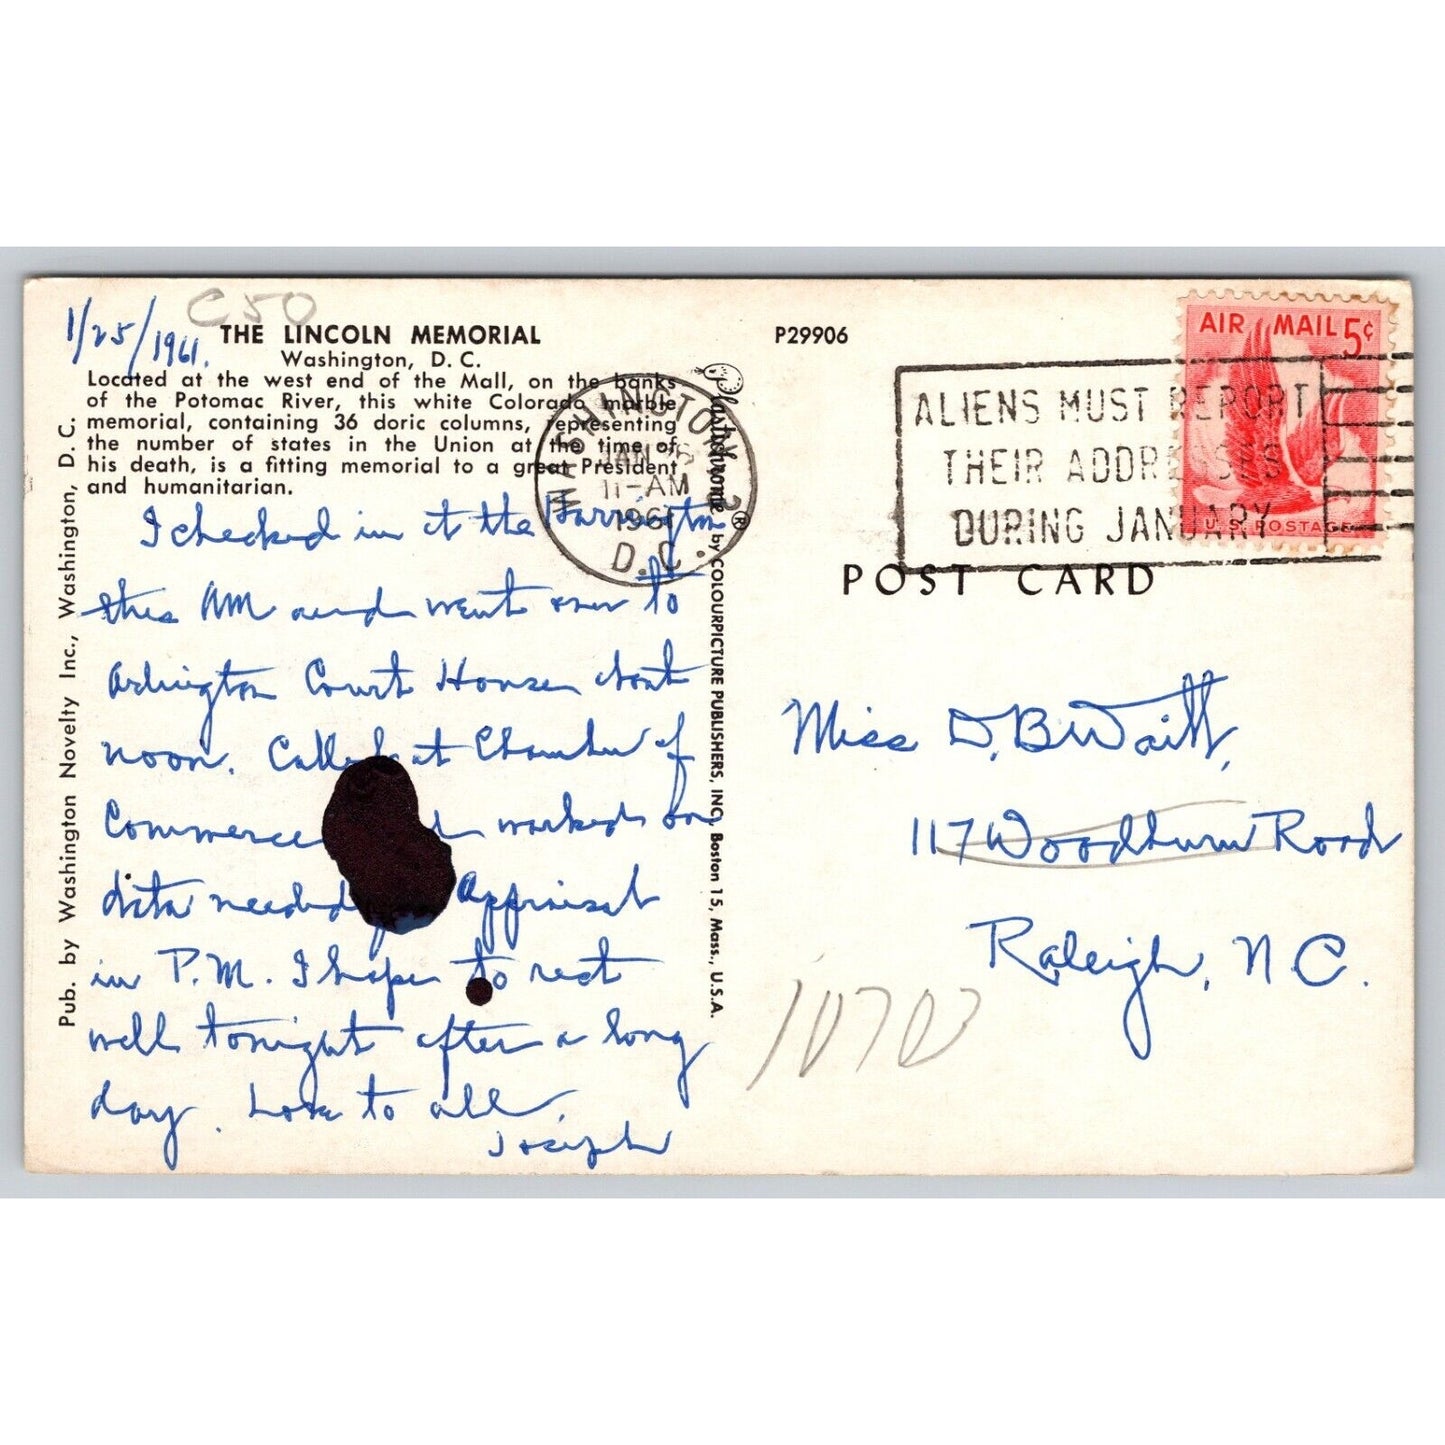 1/25/1961.
C50
THE LINCOLN MEMORIAL
Washington, D. C.
Located at the west end of the Mall, on the banks
of the Potomac River, this white Colorado marble
memorial, containing 36 doric columns, representing
the number of states in the Union at the time of
his death, is a fitting memorial to a great President
and humanitarian.
I checked in at the Harrington
this AM and went over to
Arlington Court House about
noon. Called at Chamber of
Commerce worked on
data needed Appraisal
in P.M. I hope to rest
well tonight after a long
day. Love to all.
Joseph
Pub. by Washington Novelty Inc., Washington, D. C.
Plastichrome® by COLOURPICTURE PUBLISHERS, INC., Boston 15, Mass., U.S.A.
WASHINGTON
JAN 26
11-AM
1961
D.C.
P29906
ALIENS MUST REPORT
THEIR ADDRESSES
DURING JANUARY
AIR MAIL 5¢
U.S. POSTAGE
POST CARD
Miss D. B. Waitt,
117 Woodburn Road
Raleigh, N.C.
10703